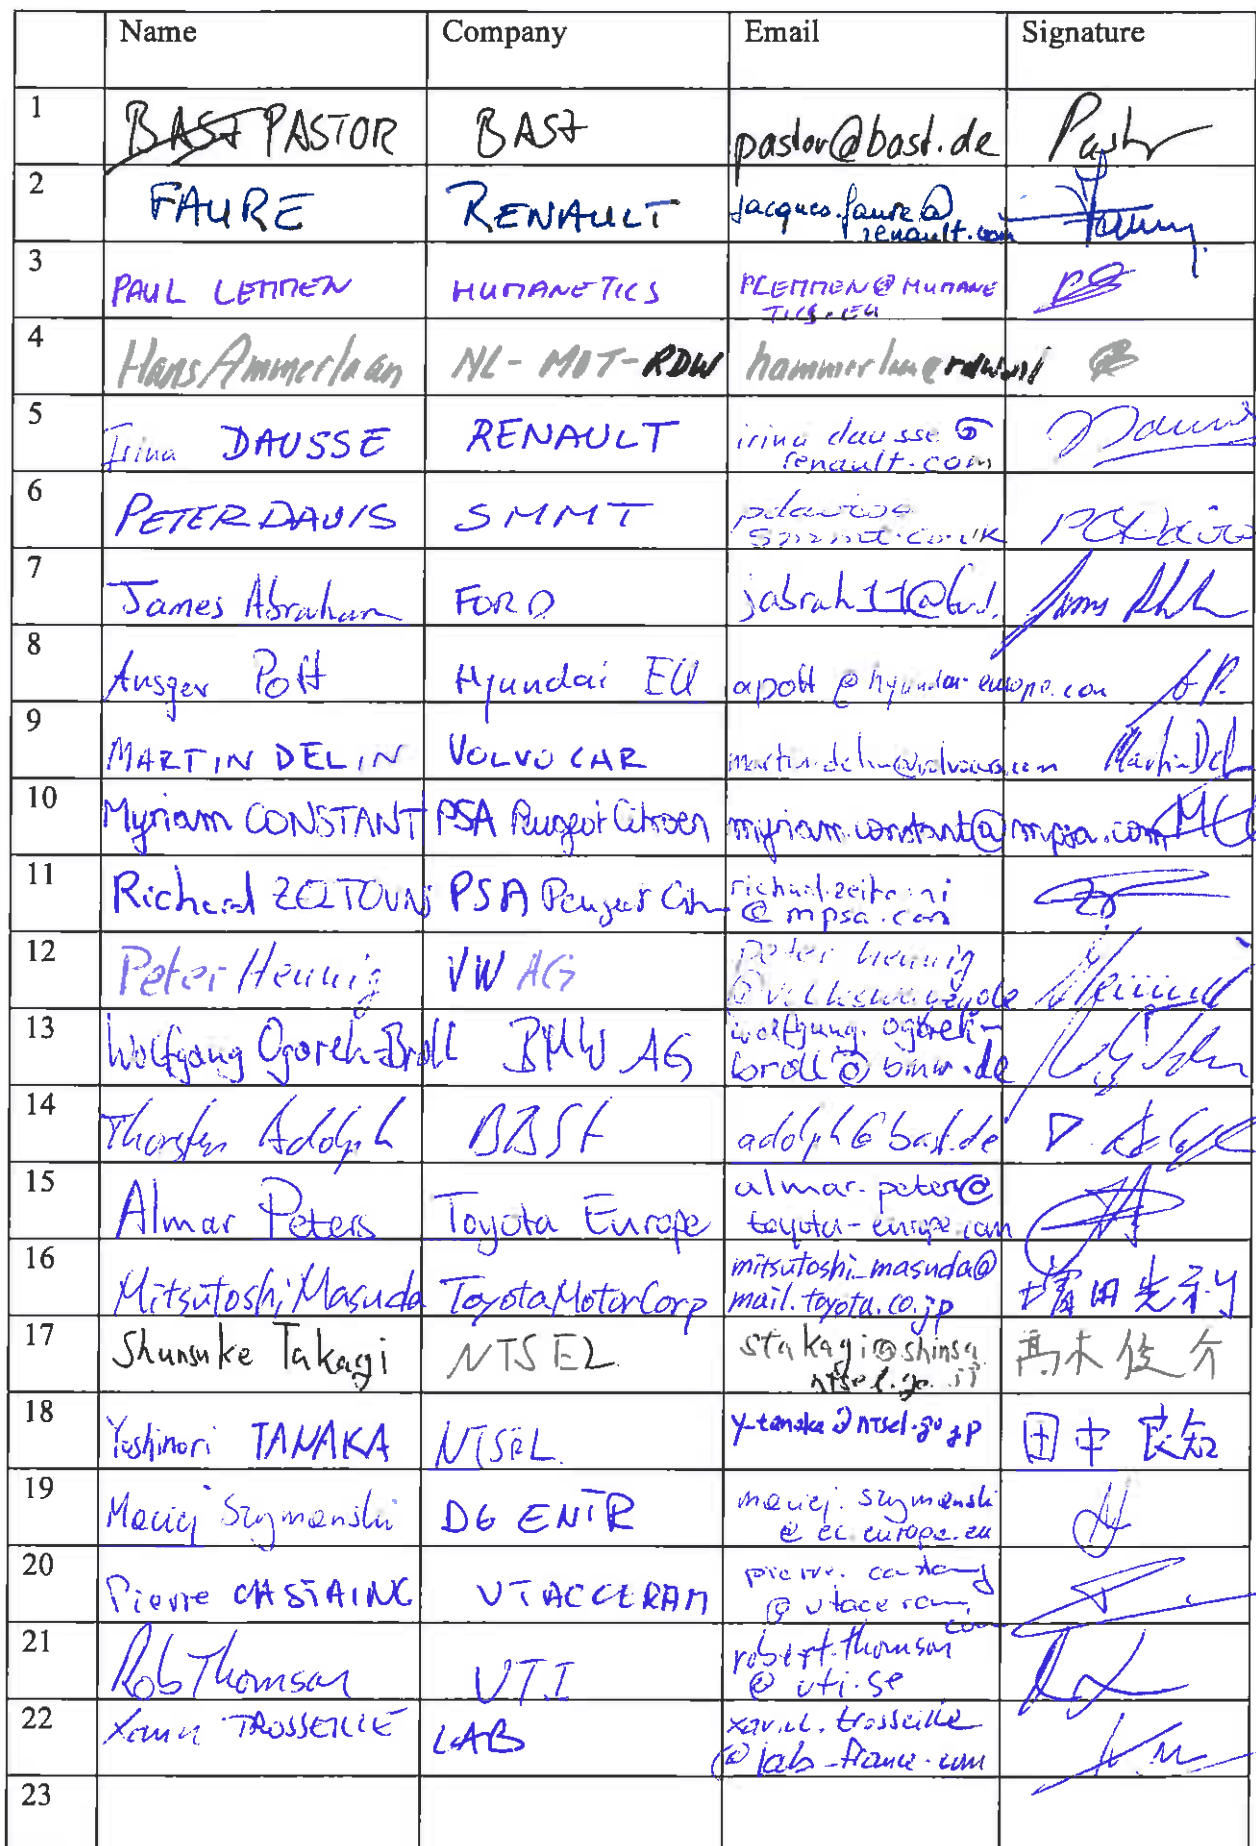 Name Company Email Signature
1 BASt PASTOR BASt pastor@bast.de Pastor
2 FAURE RENAULT jacques.faure@
renault.com
3 PAUL LEMMEN HUMANETICS PLEMMEN@HUMANE
TICS.EU
4 Hans Ammerlaan NL-MOT-RDW hammerlaan@rdw.nl
5 Irina DAUSSE RENAULT irina dausse @
renault.com
6 PETER DAVIS SMMT pdavis@
smmt.co.uk
7 James Abraham FORD jabrah11@ford.
8 Ansgar Pott Hyundai EU apott@hyundai-europe.com A.P.
9 MARTIN DELIN VOLVO CAR martin.delin@volvocars.com Martin Del
10 Myriam CONSTANT PSA Peugeot Citroen myriam.constant@mpsa.com MC
11 Richard ZEITOUNI PSA Peugeot Citr richard.zeitouni
@mpsa.com
12 Peter Hennig VW AG peter hennig
@volkswagen.de
13 Wolfgang Ogorek-Broll BMW AG wolfgang.ogorek-
broll@bmw.de
14 Thorsten Adolph BASt adolph@bast.de
15 Almar Peters Toyota Europe almar.peters@
toyota-europe.com
16 Mitsutoshi Masuda Toyota Motor Corp mitsutoshi_masuda@
mail.toyota.co.jp 増田光利
17 Shunsuke Takagi NTSEL stakagi@shinsa.
ntsel.go.jp 髙木俊介
18 Yoshinori TANAKA NTSEL y-tanaka@ntsel.go.jp 田中良知
19 Maciej Szymanski DG ENTR maciej.szymanski
@ec.europa.eu
20 Pierre CASTAING UTAC CERAM pierre.castaing
@utacceram.
com
21 Rob Thomson VTI robert.thomson
@vti.se
22 TROSSEILLE LAB xavier.trosseille
@lab-france.com
23